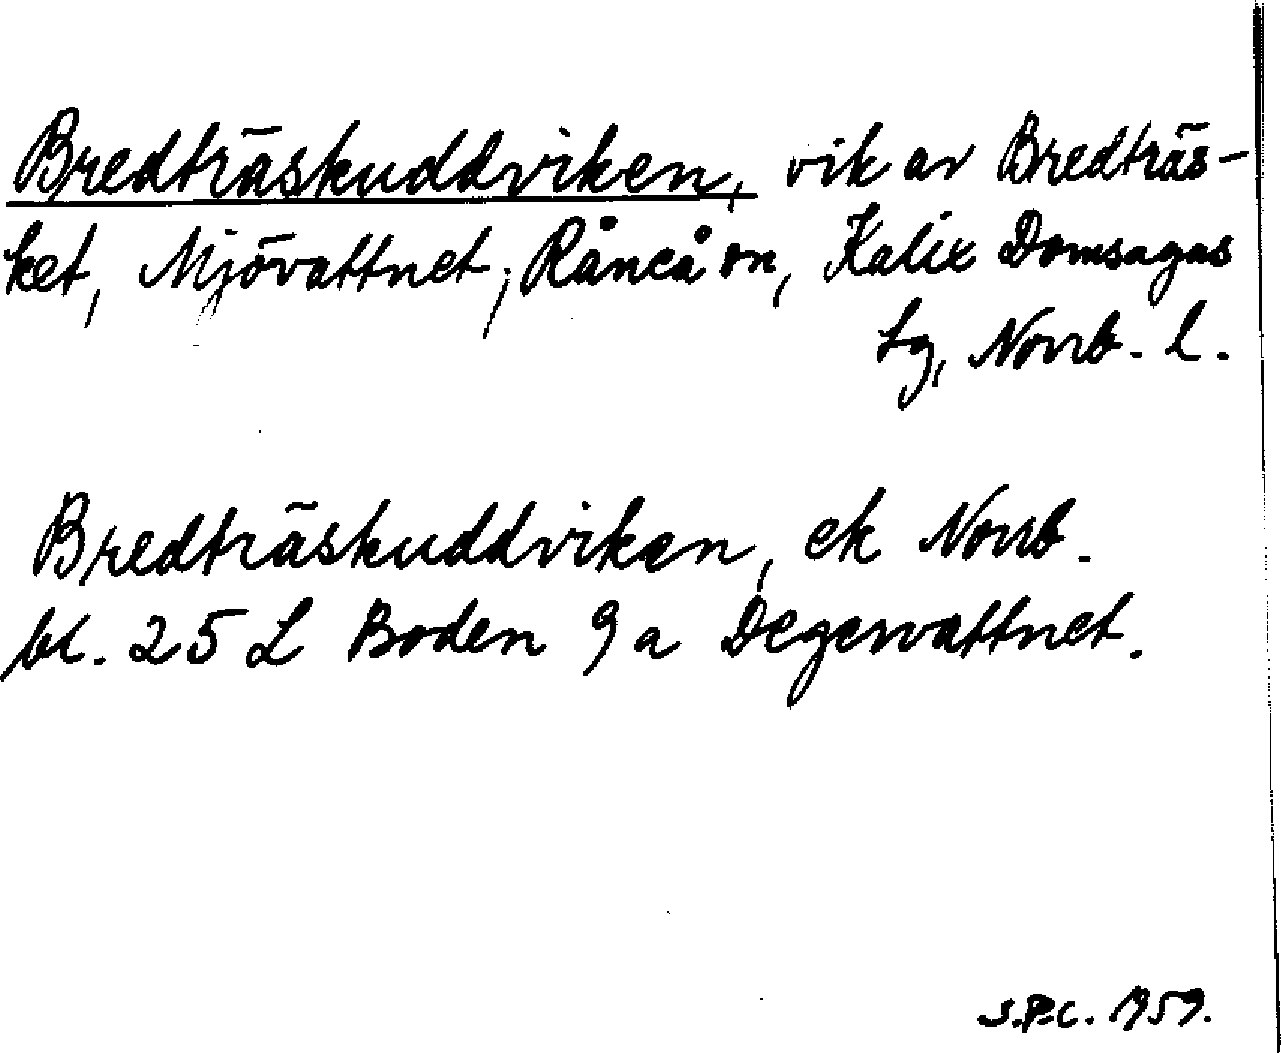 Bredträskuddviken, vik av Bredträs-
ket, Mjövattnet, Råneå sn, Kalix Domsagas
tg, Norrb. l.
Bredträskuddviken, ek Norrb.
bl. 25 L Boden 9 a Degervattnet.
S.P.C. 1959.